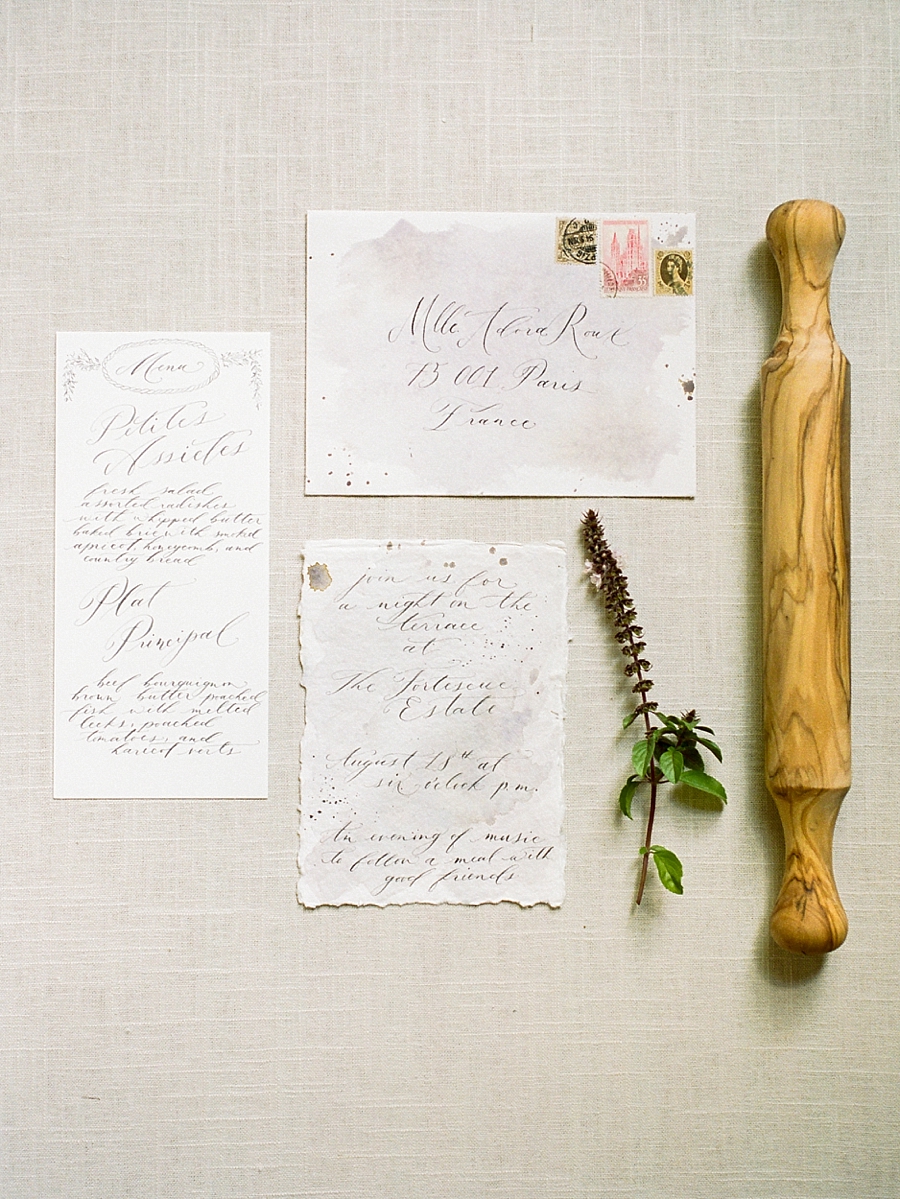 Menu
Petites
Assiettes
fresh salad
assorted radishes
with whipped butter
baked brie with smoked
apricot, honeycomb, and
country bread
Plat
Principal
beef bourguignon
brown butter poached
fish with melted
leeks, poached
tomatoes, and
haricot verts
Mlle Adora Roux
B 001 Paris
France
join us for
a night on the
terrace
at
The Fortescue
Estate
August 18th at
six o'clock p.m.
An evening of music
to follow a meal with
good friends